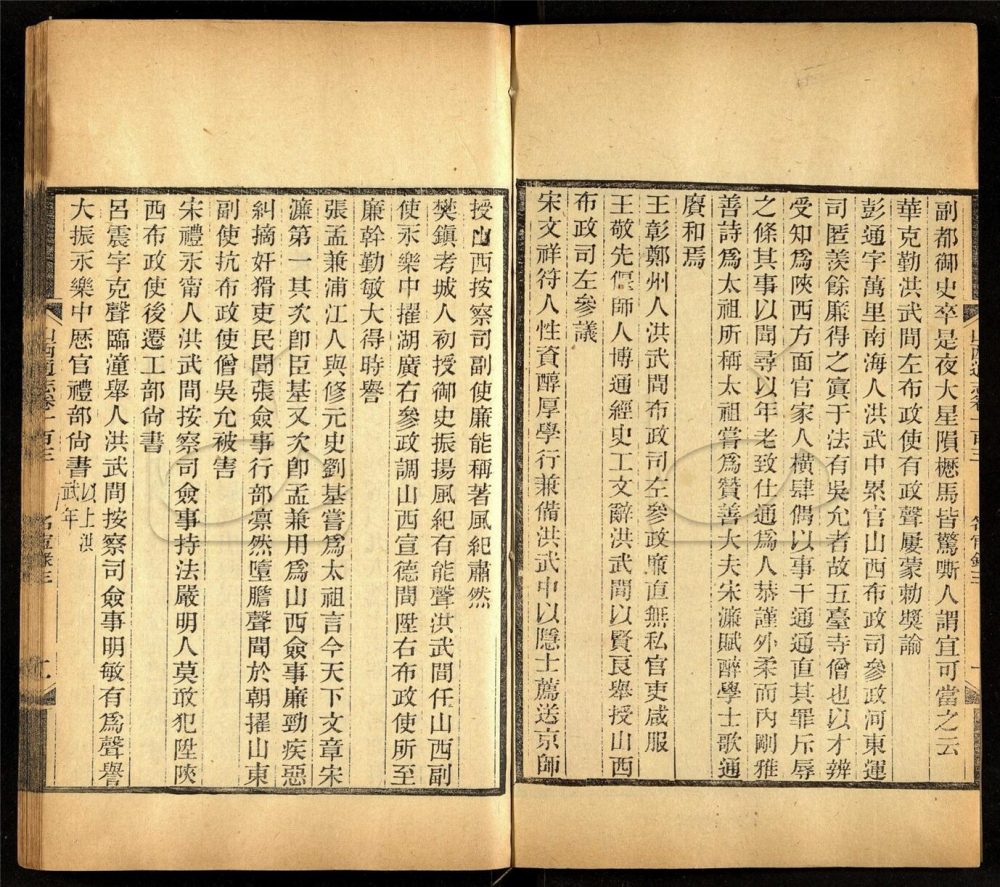 副都御史卒是夜大星隕櫪馬皆驚嘶人謂宜可當之云
華克勤洪武間左布政使有政聲屢蒙勅獎諭
彭通字萬里南海人洪武中累官山西布政司參政河東運
司匿羨餘廉得之寘于法有吳允者故五臺寺僧也以才辨
受知爲陜西方面官家人橫肆偶以事干通通直其罪斥辱
之條其事以聞尋以年老致仕通爲人恭謹外柔而內剛雅
善詩爲太祖所稱太祖嘗爲贊善大夫宋濂賦醉學士歌通
賡和焉
王彰鄭州人洪武間布政司左參政廉直無私官吏咸服
王敬先偃師人博通經史工文辭洪武間以賢良舉授山西
布政司左參議
宋文祥符人性資醇厚學行兼備洪武中以隱士薦送京師
授山西按察司副使廉能稱著風紀肅然
樊鎮考城人初授御史振揚風紀有能聲洪武間任山西副
使永樂中擢湖廣右參政調山西宣德間陞右布政使所至
廉幹勤敏大得時譽
張孟兼浦江人與修元史劉基嘗爲太祖言今天下文章宋
濂第一其次卽臣基又次卽孟兼用爲山西僉事廉勁疾惡
糾摘奸猾吏民聞張僉事行部凛然墮膽聲聞於朝擢山東
副使抗布政使僧吳允被害
宋禮永甯人洪武間按察司僉事持法嚴明人莫敢犯陞陜
西布政使後遷工部尙書
呂震字克聲臨潼舉人洪武間按察司僉事明敏有爲聲譽
大振永樂中歷官禮部尙書以上洪武年